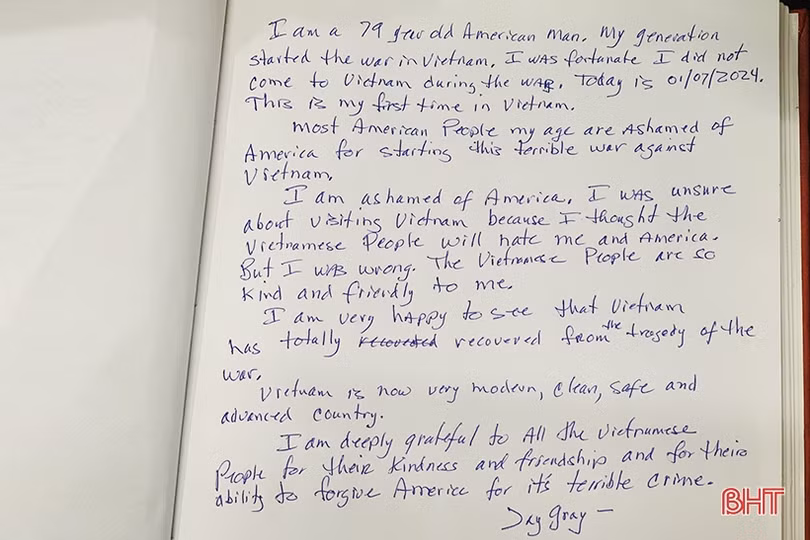 I am a 79 year old American man. My generation
started the war in Vietnam. I was fortunate I did not
come to Vietnam during the war. Today is 01/07/2024.
This is my first time in Vietnam.
Most American People my age are Ashamed of
America for starting this terrible war against
Vietnam.
I am ashamed of America. I was unsure
about visiting Vietnam because I thought the
Vietnamese People will hate me and America.
But I was wrong. The Vietnamese People are so
kind and friendly to me.
I am very happy to see that Vietnam
has totally recovered from the tragedy of the
war.
Vietnam is now very modern, clean, safe and
advanced country.
I am deeply grateful to All the Vietnamese
People for their kindness and friendship and for their
ability to forgive America for it's terrible crime.
Jay Gray —
BHT